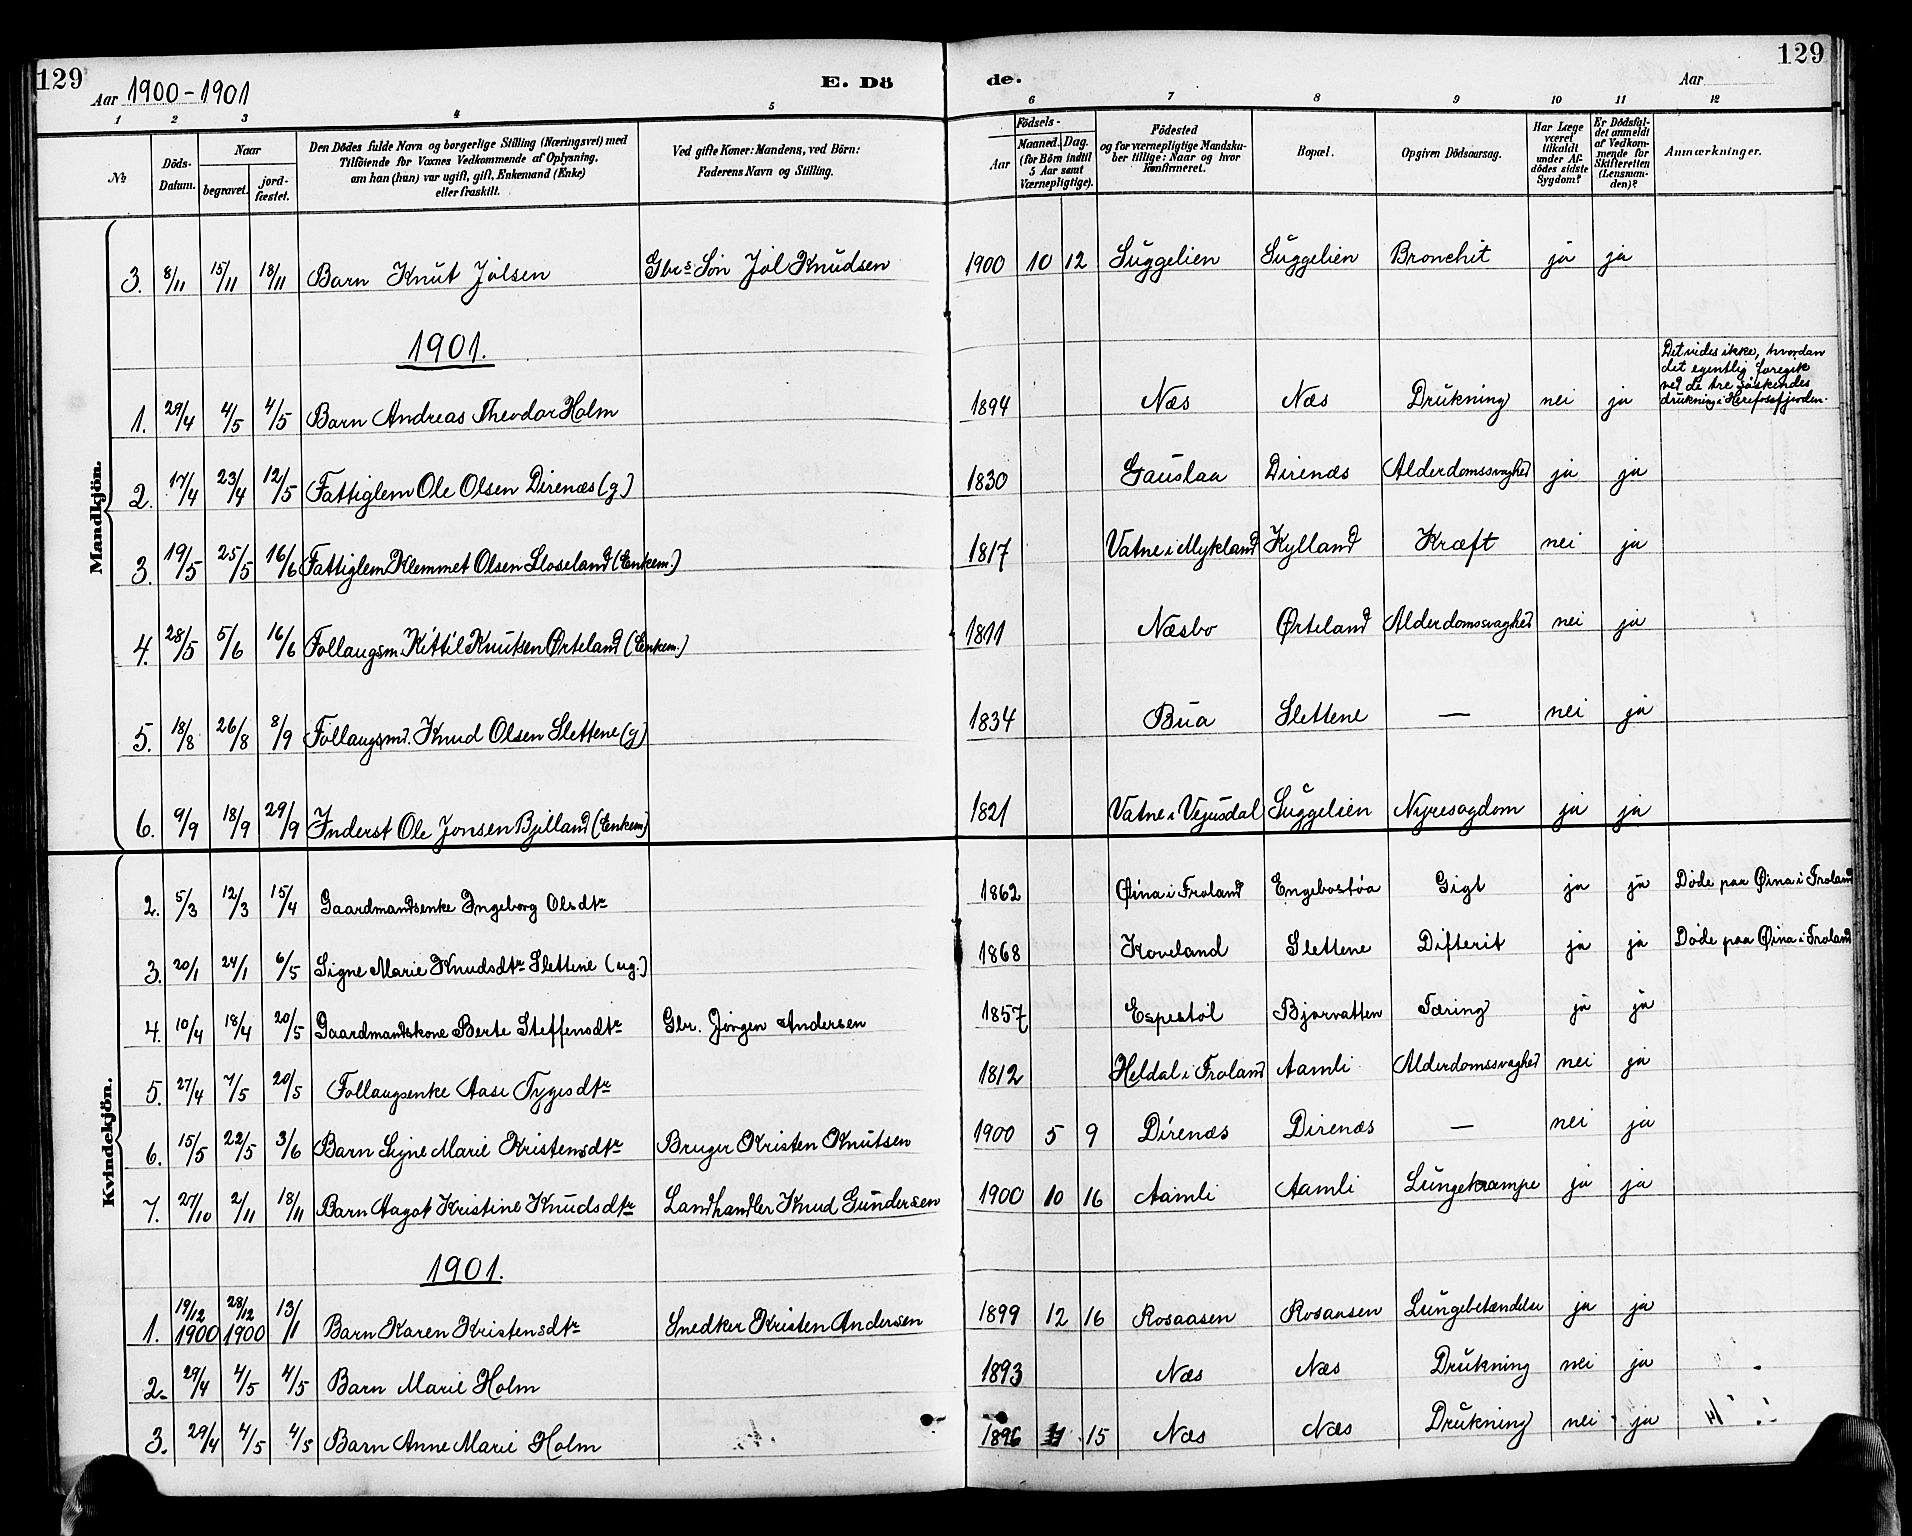 129
Aar 1900-1901
E. Dö
de.
Aar
129
1 2 3 4 5 6 7 8 9 10 11 12
№
Döds-Datum.
Naar
begravet.
jord-fæstet.
Den Dödes fulde Navn og borgerlige Stilling (Næringsvei) med
Tilföiende for Voxnes Vedkommende af Oplysning,
om han (hun) var ugift, gift, Enkemand (Enke)
eller fraskilt.
Ved gifte Koner: Mandens, ved Börn:
Faderens Navn og Stilling.
Aar
Födsels-
Maaned. Dag.
(for Börn indtil
5 Aar samt
Værnepligtige).
Födested
og for værnepligtige Mandska-
ber tillige: Naar og hvor
konfirmeret.
Bopæl.
Opgiven Dödsaarsag.
Har Læge
været
tilkaldt
under Af-
dödes sidste
Sygdom?
Er Dödsfal-
det anmeldt
af Vedkom-
mende for
Skifteretten
(Lensman-
den)?
Anmærkninger.
Mandkjön.
3. 8/11 15/11 18/11 Barn Knut Jólsen Gbrs Søn Jól Knudsen 1900 10 12 Suggelien Suggelien Bronchit ja ja
1901.
1. 29/4 4/5 4/5 Barn Andreas Theodor Holm 1894 Næs Næs Drukning nei ja Det vides ikke, hvordan
det egentlig foregik
ved de tre søskendes
drukning i Herefossfjorden.
2. 17/4 23/4 12/5 Fattiglem Ole Olsen Direnæs (g) 1830 Gauslaa Direnæs Alderdomssvaghed ja ja
3. 19/5 25/5 16/6 Fattiglem Klemmet Olsen Sloseland (Enkem.) 1817 Vatne i Mykland Kylland Kræft nei ja
4. 28/5 5/6 16/6 Follaugsm. Kittil Knutsen Ørteland (Enkem.) 1811 Næsbo Ørteland Alderdomssvaghed nei ja
5. 18/8 26/8 8/9 Follaugsmd. Knud Olsen Slettene (g) 1834 Bua Slettene — nei ja
6. 9/9 18/9 29/9 Inderst Ole Jonsen Bjelland (Enkem) 1821 Vatne i Vegusdal Suggelien Nyresygdom ja ja
Kvindekjön.
2. 5/3 12/3 15/4 Gaardmandsenke Ingeborg Olsdtr 1862 Øina i Froland Engebostøa Gigt ja ja Døde paa Øina i Froland
3. 20/1 24/1 6/5 Signe Marie Knudsdtr Slettene (ug.) 1868 Koveland Slettene Difterit ja ja Døde paa Øina i Froland
4. 10/4 18/4 20/5 Gaardmandskone Berte Steffensdtr Gbr. Jørgen Andersen 1857 Espestøl Bjorvatten Tæring ja ja
5. 27/4 7/5 20/5 Follaugsenke Aase Tygesdtr 1812 Heldal i Froland Aamli Alderdomssvaghed nei ja
6. 15/5 22/5 3/6 Barn Signe Marie Kristensdtr Bruger Kristen Knutsen 1900 5 9 Direnæs Direnæs — nei ja
7. 27/10 2/11 18/11 Barn Aagot Kristine Knudsdtr Landhandler Knud Gundersen 1900 10 16 Aamli Aamli Lungekrampe ja ja
1901.
1. 19/12 1900 28/12 1900 13/1 Barn Karen Kristensdtr Snedker Kristen Andersen 1899 12 16 Rosaasen Rosaasen Lungebetændelse ja ja
2. 29/4 4/5 4/5 Barn Marie Holm 1893 Næs Næs Drukning nei ja
3. 29/4 4/5 4/5 Barn Anne Marie Holm 1896 15 Næs Næs Drukning nei ja